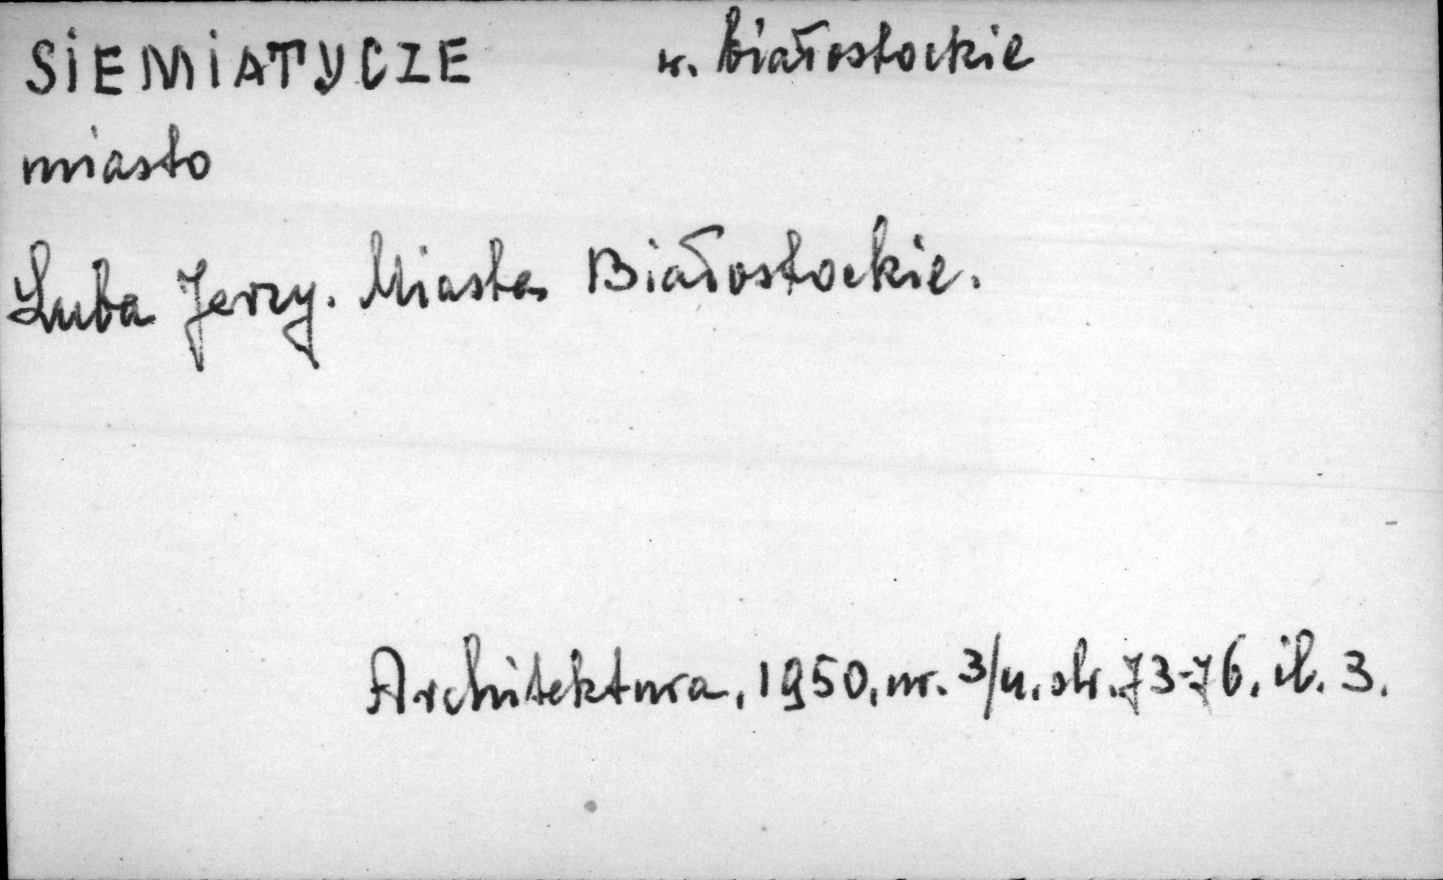 SIEMIATYCZE w. białostockie
miasto
Łuba Jerzy. Miasta Białostockie.
Architektura, 1950, nr. 3/4. str. 73-76, il. 3.